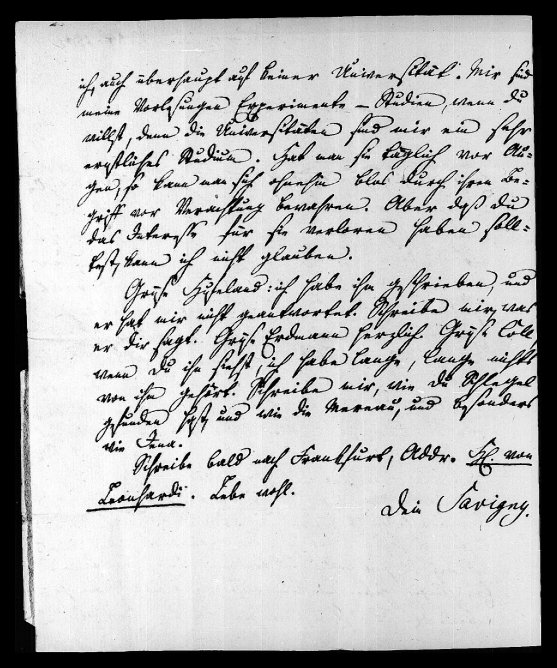 ich, auch überhaupt auf keiner Universität. Mir sind
meine Vorlesungen Experimente – Studien, wenn du
willst, denn die Universitäten sind mir ein sehr
ernstliches Studium. Hat man sie täglich vor Au-
gen, so kann man sich ohnehin blos durch ihren Be-
griff vor Verachtung bewahren. Aber daß du
das Interesse für sie verloren haben soll-
test, kann ich nicht glauben.
Grüße Hufeland: ich habe ihm geschrieben, und
er hat mir nicht geantwortet. Schreibe mir, was
er dir sagt. Grüße Erdmann herzlich. Grüße
wenn du ihn siehst, ich habe lange, lange nichts
von ihm gehört. Schreibe mir, wie du Schlegel
gefunden hast, und wie die Mereau, und besonders
wie Jena.
Schreibe bald nach Frankfurt, Addr. von
Leonhardi. Lebe wohl.
Dein Savigny.